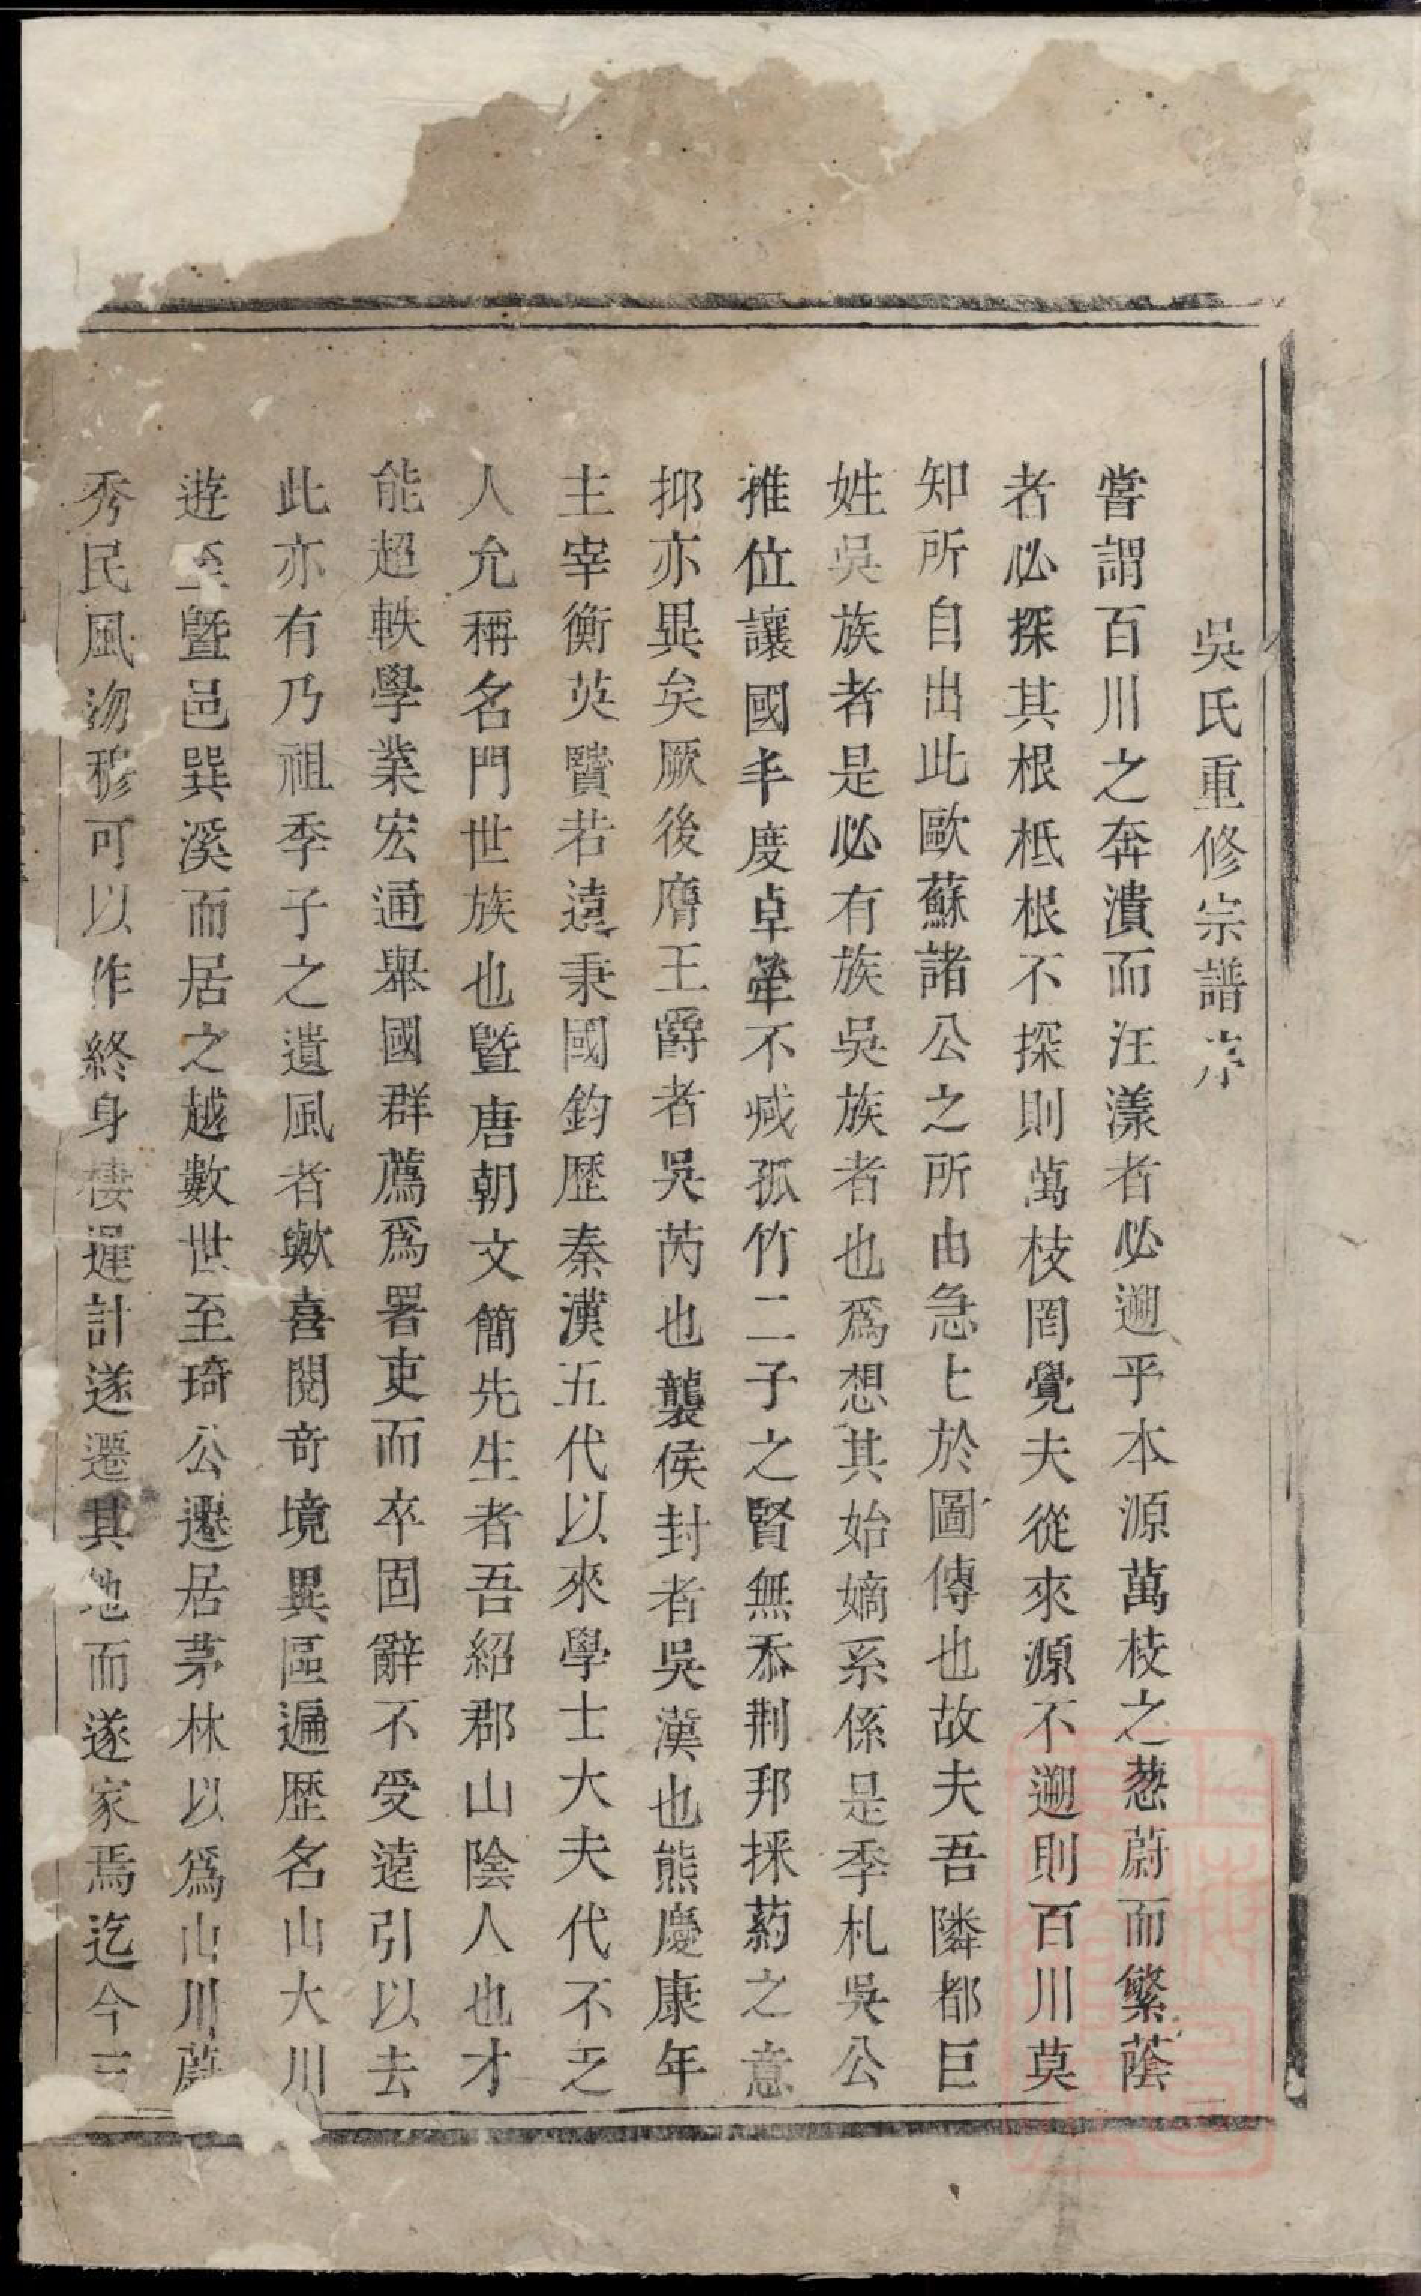 吳氏重修宗譜序
嘗謂百川之奔瀆而汪漾者必遡乎本源萬枝之葱蔚而繁蔭
者必探其根柢根不探則萬枝罔覺夫從來源不遡則百川莫
知所自出此歐蘇諸公之所由急上於圖傳也故夫吾隣都巨
姓吳族者是必有族吳族者也爲想其始嫡系係是季札吳公
推位讓國丰度卓犖不减孤竹二子之賢無忝荆邦採葯之意
抑亦異矣厥後膺王爵者吳芮也襲侯封者吳漢也熊慶康年
主宰衡英賢若遠秉國鈞歷秦漢五代以來學士大夫代不乏
人允稱名門世族也曁唐朝文簡先生者吾紹郡山陰人也才
能超軼學業宏通舉國群薦爲署吏而卒固辭不受遠引以去
此亦有乃祖季子之遺風者歟喜閱奇境異區遍歷名山大川
遊至曁邑巽溪而居之越數世至琦公遷居茅林以爲山川蔚
秀民風沕穆可以作終身棲遲計遂遷其地而遂家焉迄今三
上海圖書館藏